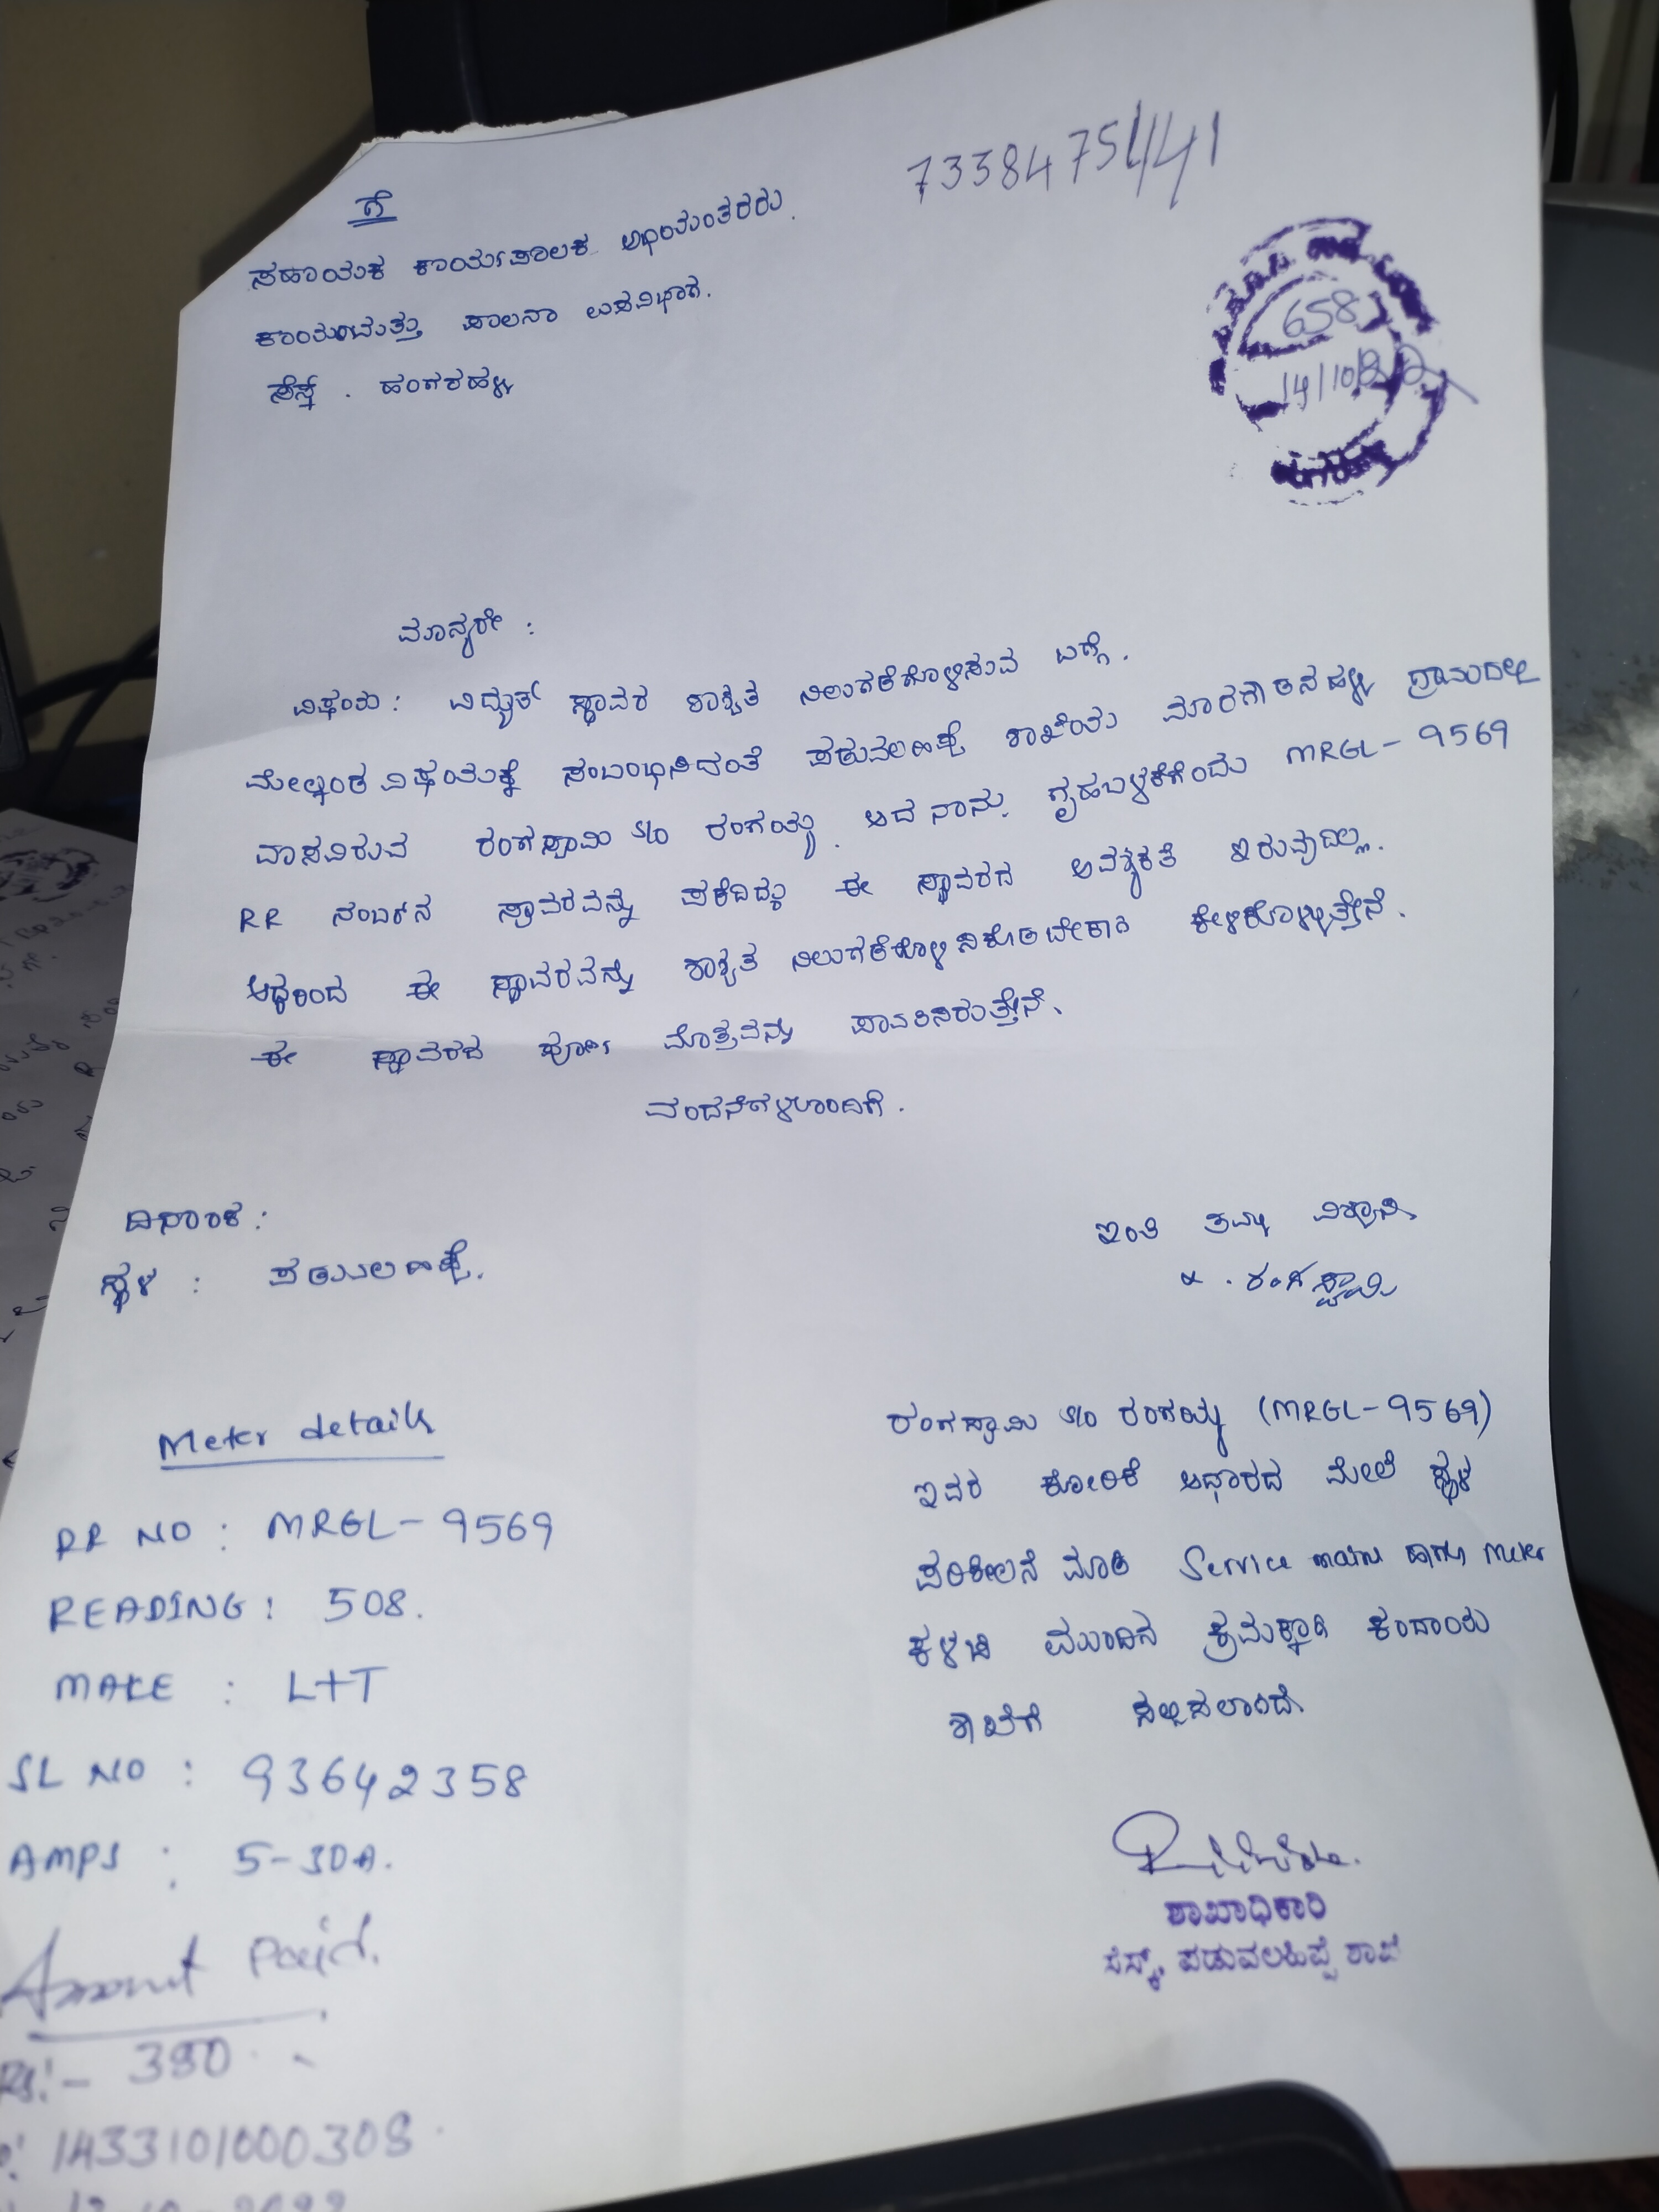 ಗೆ
7338475441
ಸಹಾಯಕ ಕಾರ್ಯಪಾಲಕ ಅಭಿಯಂತರರು.
ಕಾರ್ಯಮತ್ತು ಪಾಲನಾ ಉಪವಿಭಾಗ.
ಸೆಸ್ಕ್. ಹಂಗರಹಳ್ಳಿ
658
14/10/22
ಮಾನ್ಯರೇ :
ವಿಷಯ : ವಿದ್ಯುತ್ ಸ್ಥಾವರ ಶಾಶ್ವತ ನಿಲುಗಡೆಗೊಳಿಸುವ ಬಗ್ಗೆ.
ಮೇಲ್ಕಂಡ ವಿಷಯಕ್ಕೆ ಸಂಬಂಧಿಸಿದಂತೆ ಪಡುವಲಹಿಪ್ಪೆ ಶಾಖೆಯ ಮಾರಗೌಡನಹಳ್ಳಿ ಗ್ರಾಮದಲ್ಲಿ
ವಾಸವಿರುವ ರಂಗಸ್ವಾಮಿ S/o ರಂಗಯ್ಯ. ಆದ ನಾನು. ಗೃಹಬಳಕೆಗೆಂದು MRGL-9569
RR ನಂಬರ್‌ನ ಸ್ಥಾವರವನ್ನು ಪಡೆದಿದ್ದು ಈ ಸ್ಥಾವರದ ಅವಶ್ಯಕತೆ ಇರುವುದಿಲ್ಲ.
ಆದ್ದರಿಂದ ಈ ಸ್ಥಾವರವನ್ನು ಶಾಶ್ವತ ನಿಲುಗಡೆಗೊಳಿಸಿಕೊಡಬೇಕಾಗಿ ಕೇಳಿಕೊಳ್ಳುತ್ತೇನೆ.
ಈ ಸ್ಥಾವರದ ಪೂರ್ಣ ಮೊತ್ತವನ್ನು ಪಾವತಿಸಿರುತ್ತೇನೆ.
ವಂದನೆಗಳೊಂದಿಗೆ.
ದಿನಾಂಕ :
ಸ್ಥಳ : ಪಡುವಲಹಿಪ್ಪೆ.
ಇಂತಿ ತಮ್ಮ ವಿಶ್ವಾಸಿ
ರಂಗಸ್ವಾಮಿ
Meter details
RR NO : MRGL-9569
READING : 508.
MAKE : L+T
SL NO : 93642358
AMPS : 5-30A.
Amount Paid.
Rs:- 380
1433101000308
ರಂಗಸ್ವಾಮಿ S/o ರಂಗಯ್ಯ (MRGL-9569)
ಇವರ ಕೋರಿಕೆ ಆಧಾರದ ಮೇಲೆ ಸ್ಥಳ
ಪರಿಶೀಲನೆ ಮಾಡಿ Service mains ಹಾಗೂ meter
ಕಳಚಿ ಮುಂದಿನ ಕ್ರಮಕ್ಕಾಗಿ ಕಂದಾಯ
ಶಾಖೆಗೆ ಸಲ್ಲಿಸಲಾಗಿದೆ.
ಶಾಖಾಧಿಕಾರಿ
ಸೆಸ್ಕ್, ಪಡುವಲಹಿಪ್ಪೆ ಶಾಖೆ